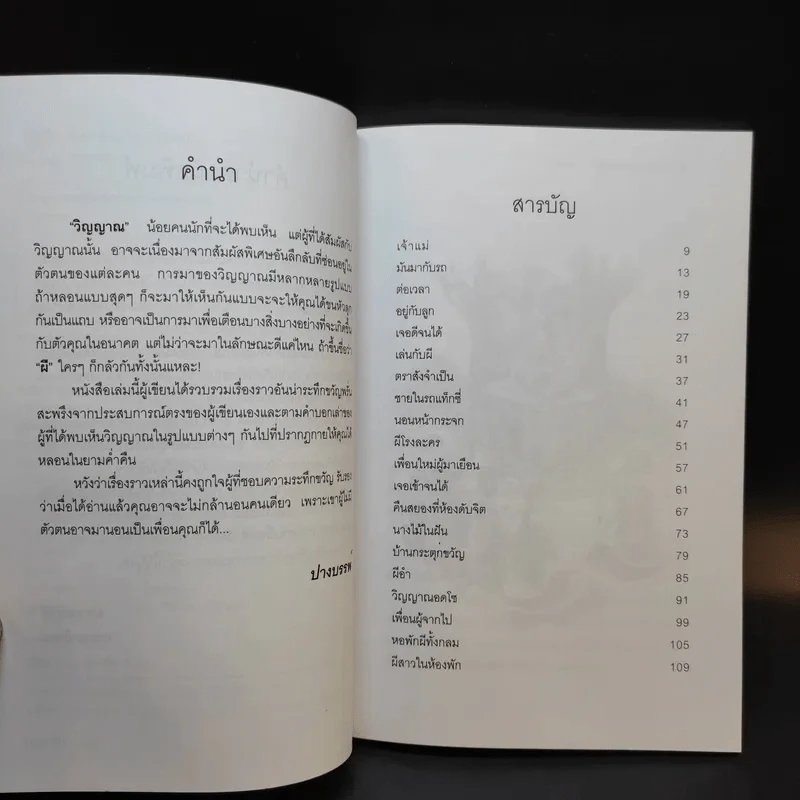 คำนำ
"วิญญาณ" น้อยคนนักที่จะได้พบเห็น แต่ผู้ที่ได้สัมผัสกับ
วิญญาณนั้น อาจจะเนื่องมาจากสัมผัสพิเศษอันลึกลับที่ซ่อนอยู่ใน
ตัวตนของแต่ละคน การมาของวิญญาณมีหลากหลายรูปแบบ
ถ้าหลอนแบบสุดๆ ก็จะมาให้เห็นกันแบบจะจะให้คุณได้ขนหัวลุก
กันเป็นแถบ หรืออาจเป็นการมาเพื่อเตือนบางสิ่งบางอย่างที่จะเกิดขึ้น
กับตัวคุณในอนาคต แต่ไม่ว่าจะมาในลักษณะดีแค่ไหน ถ้าขึ้นชื่อว่า
"ผี" ใครๆ ก็กลัวกันทั้งนั้นแหละ!
หนังสือเล่มนี้ผู้เขียนได้รวบรวมเรื่องราวอันน่าระทึกขวัญพรั่น
สะพรึงจากประสบการณ์ตรงของผู้เขียนเองและตามคำบอกเล่าของ
ผู้ที่ได้พบเห็นวิญญาณในรูปแบบต่างๆ กันไปที่ปรากฏกายให้คุณได้
หลอนในยามค่ำคืน
หวังว่าเรื่องราวเหล่านี้คงถูกใจผู้ที่ชอบความระทึกขวัญ รับรอง
ว่าเมื่อได้อ่านแล้วคุณอาจจะไม่กล้านอนคนเดียว เพราะเขาผู้ไม่มี
ตัวตนอาจมานอนเป็นเพื่อนคุณก็ได้...
ปางบรรพ์
สารบัญ
เจ้าแม่ 9
มันมากับรถ 13
ต่อเวลา 19
อยู่กับลูก 23
เจอดีจนได้ 27
เล่นกับผี 31
ตราสังจำเป็น 37
ชายในรถแท็กซี่ 41
นอนหน้ากระจก 47
ผีโรงละคร 51
เพื่อนใหม่ผู้มาเยือน 57
เจอเข้าจนได้ 61
คืนสยองที่ห้องดับจิต 67
นางไม้ในฝัน 73
บ้านกระตุกขวัญ 79
ผีอำ 85
วิญญาณอดโซ 91
เพื่อนผู้จากไป 99
หอพักผีทั้งกลม 105
ผีสาวในห้องพัก 109